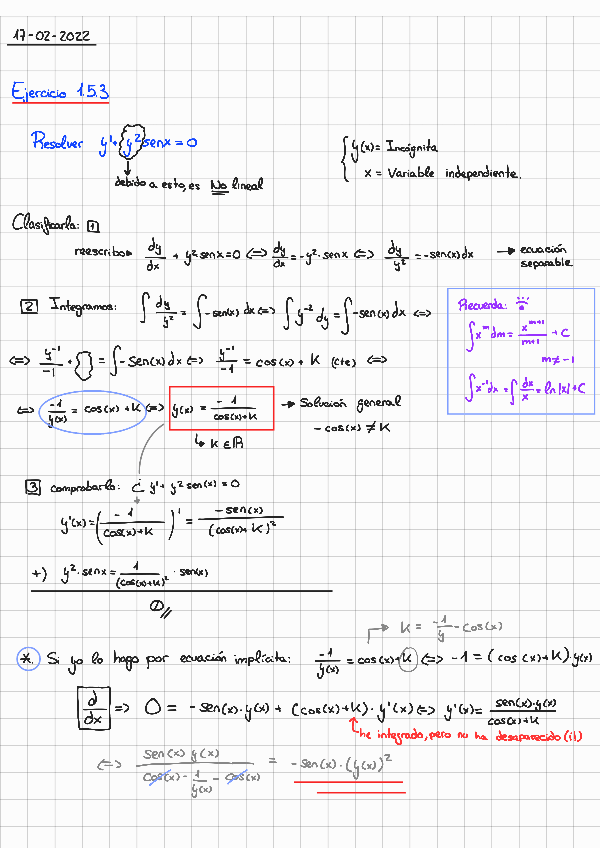 17-02-2022
Ejercicio 1.5.3
Resolver y' + y² senx = 0
debido a esto, es No lineal
{ y(x) = Incógnita
x = Variable independiente.
Clasificarla: 1
reescribo → dy/dx + y² senx = 0 ⟺ dy/dx = -y² · senx ⟺ dy/y² = -sen(x) dx → ecuación separable
2 Integramos: ∫ dy/y² = ∫ -sen(x) dx ⟺ ∫ y⁻² dy = ∫ -sen(x) dx ⟺
Recuerda:
∫ x^m dm = x^(m+1)/(m+1) + C
m ≠ -1
∫ x⁻¹ dx = ∫ dx/x = ln|x| + C
⟺ y⁻¹/-1 + = ∫ -sen(x) dx ⟺ y⁻¹/-1 = cos(x) + K (cte) ⟺
⟺ -1/y(x) = cos(x) + K ⟺ y(x) = -1/(cos(x)+K) → Solución general
-cos(x) ≠ K
↳ K ∈ ℝ
3 comprobarlo: ¿ y' + y² sen(x) = 0
y'(x) = (-1/(cos(x)+K))' = -sen(x)/(cos(x)+K)²
+) y² · senx = 1/(cos(x)+K)² · sen(x)
0 //
*. Si yo lo hago por ecuación implícita: -1/y(x) = cos(x)+K ⟺ -1 = (cos(x)+K) · y(x)
→ K = -1/y - cos(x)
d/dx ⟹ 0 = -sen(x) · y(x) + (cos(x)+K) · y'(x) ⟺ y'(x) = sen(x)·y(x)/(cos(x)+K)
he integrado, pero no ha desaparecido (il)
⟺ sen(x) y(x)/(cos(x) - 1/y(x) - cos(x)) = -sen(x) · (y(x))²